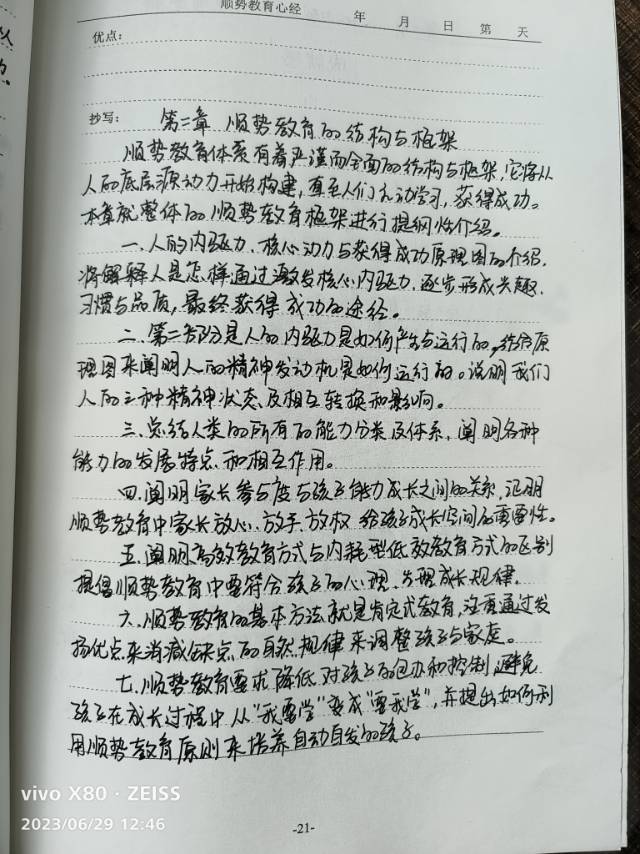 顺势教育心经 年 月 日 第 天
优点：
抄写： 第二章 顺势教育的结构与框架
顺势教育体系有着严谨而全面的结构与框架，它将从
人的底层源动力开始构建，直至人们主动学习，获得成功。
本章就整体的顺势教育框架进行提纲性介绍。
一、人的内驱力、核心动力与获得成功原理图的介绍，
将解释人是怎样通过激发核心内驱力，逐步形成兴趣、
习惯与品质，最终获得成功的途径。
二、第二部分是人的内驱力是如何产生与运行的，结合原
理图来阐明人的精神发动机是如何运行的。说明我们
人的三种精神状态及相互转换和影响。
三、总结人类的所有的能力分类及体系，阐明各种
能力的发展特点和相互作用。
四、阐明家长参与度与孩子能力成长之间的关系，证明
顺势教育中家长放心、放手、放权给孩子成长空间的重要性。
五、阐明高效教育方式与内耗型低效教育方式的区别
提倡顺势教育中要符合孩子的心理、发现成长规律。
六、顺势教育的基本方法就是肯定式教育，注重通过发
扬优点来消减缺点的自然规律来调整孩子与家庭。
七、顺势教育要求降低对孩子的包办和控制，避免
孩子在成长过程中从“我要学”变成“要我学”，并提出如何利
用顺势教育原则来培养自动自发的孩子。
vivo X80 · ZEISS
2023/06/29 12:46
-21-